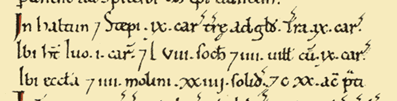 In hatun 7 Stepi . ix . car' tre ad gld . Tra . ix . car' .
Ibi ht Iuo . i . car' . 7 l viii . soch 7 iiii . uill cu . ix . car' .
Ibi eccla 7 iiii . molini . xxiiii . solid . 7 c xx . ac pti